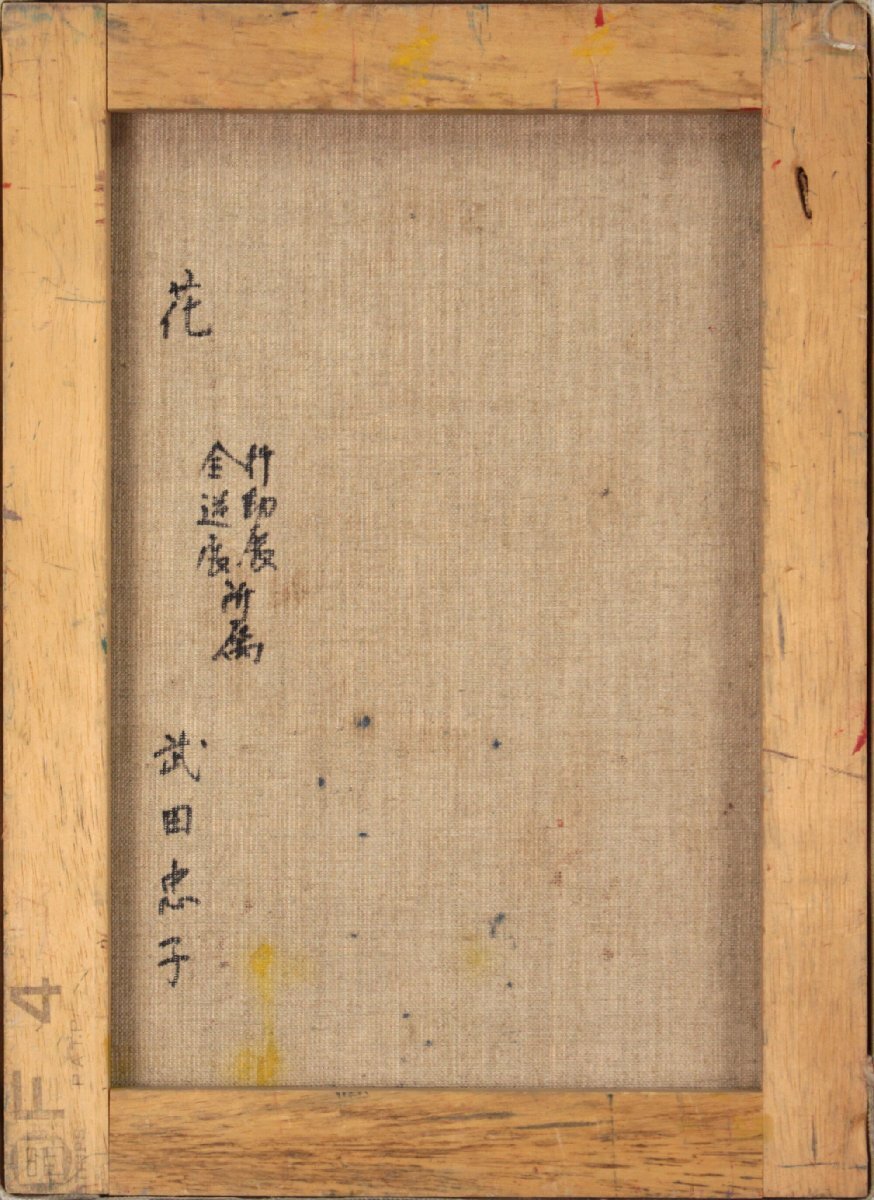 花
行動展
全道展
所属
武田忠子
F 4